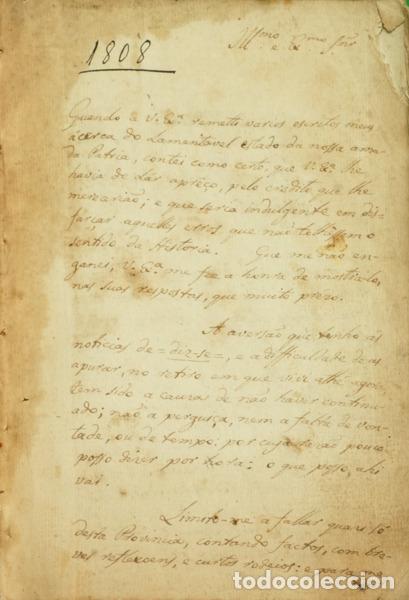 1808
Illmo e Exmo Snr
Quando a V. Exª remetti varios escritos meus
ácerca do Lamentavel estado da nossa ama-
da Patria, contei como certo, que V. Exª lhe
havia de dar apreço, pelo credito que lhe
merecerião; e que seria indulgente em dis-
farçar aquelles erros que não tolhissem o
sentido da Historia. Que me não en-
ganei, V. Exª me fez a honra de mostralo,
nas suas respostas, que muito prezo.
A aversão que tenho ás
noticias de = diz-se =, e a difficuldade de as
apurar, no retiro em que vivi athé agora
tem sido a causa de não haver continu-
ado; não a perguiça, nem a falta de von-
tade, ou de tempo: por cuja razão pouco
posso dizer por hora: o que posso, ahi
vai.
Limito-me a fallar quasi só
desta Provincia, contando factos, com bre-
ves reflexoens, e curtos rodeios: e para me
todocoleccion
todocoleccion.net